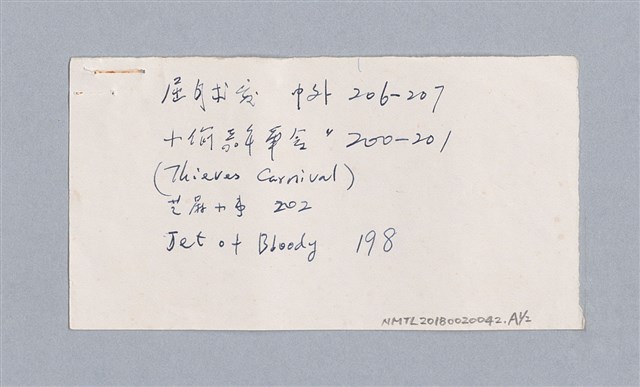 屈身求爱 中外 206-207
小偷嘉年華会 〃 200-201
(Thieves Carnival)
芝麻小事 202
Jet of Bloody 198
NMTL20180020042.A1/2